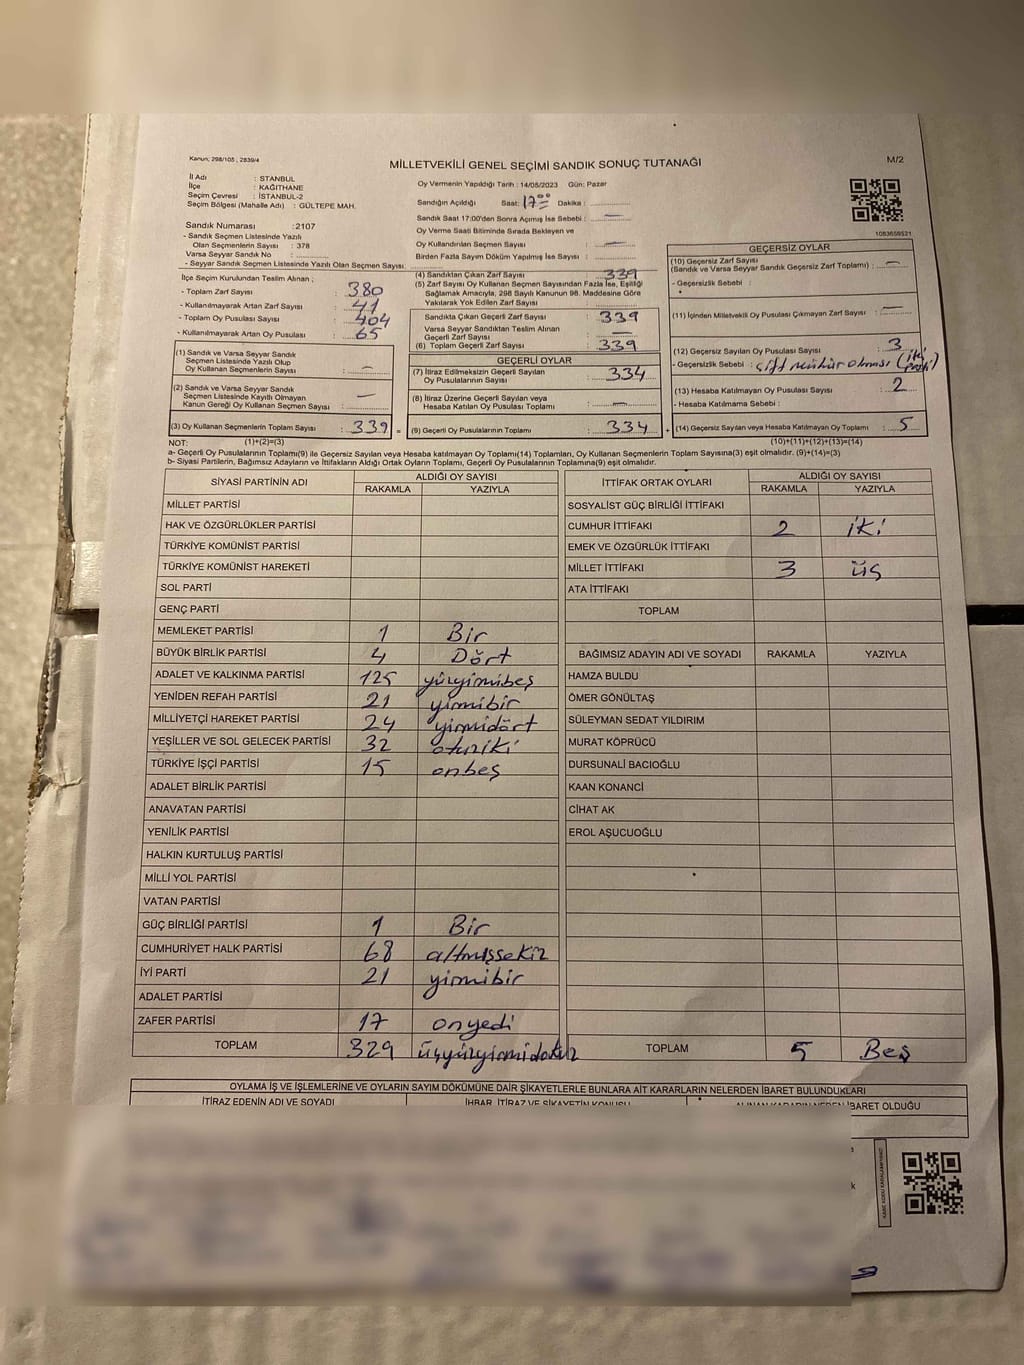 Kanun; 298/105 , 2839/4
MİLLETVEKİLİ GENEL SEÇİMİ SANDIK SONUÇ TUTANAĞI
M/2
İl Adı : STANBUL
İlçe : KAĞITHANE
Seçim Çevresi : İSTANBUL-2
Seçim Bölgesi (Mahalle Adı) : GÜLTEPE MAH.
Sandık Numarası :2107
- Sandık Seçmen Listesinde Yazılı
Olan Seçmenlerin Sayısı : 378
Varsa Seyyar Sandık No :
- Seyyar Sandık Seçmen Listesinde Yazılı Olan Seçmen Sayısı:
Oy Vermenin Yapıldığı Tarih : 14/05/2023 Gün: Pazar
Sandığın Açıldığı Saat: 17 00 Dakika :
Sandık Saat 17:00'den Sonra Açılmış İse Sebebi : —
Oy Verme Saati Bitiminde Sırada Bekleyen ve
Oy Kullandırılan Seçmen Sayısı : —
Birden Fazla Sayım Döküm Yapılmış İse Sayısı :
1083659521
İlçe Seçim Kurulundan Teslim Alınan ;
- Toplam Zarf Sayısı : 380
- Kullanılmayarak Artan Zarf Sayısı : 41
- Toplam Oy Pusulası Sayısı : 404
- Kullanılmayarak Artan Oy Pusulası : 65
(1) Sandık ve Varsa Seyyar Sandık
Seçmen Listesinde Yazılı Olup
Oy Kullanan Seçmenlerin Sayısı : —
(2) Sandık ve Varsa Seyyar Sandık
Seçmen Listesinde Kayıtlı Olmayan
Kanun Gereği Oy Kullanan Seçmen Sayısı : —
(3) Oy Kullanan Seçmenlerin Toplam Sayısı : 339 =
(4) Sandıktan Çıkan Zarf Sayısı : 339
(5) Zarf Sayısı Oy Kullanan Seçmen Sayısından Fazla İse, Eşitliği
Sağlamak Amacıyla, 298 Sayılı Kanunun 98. Maddesine Göre
Yakılarak Yok Edilen Zarf Sayısı :
Sandıkta Çıkan Geçerli Zarf Sayısı : 339
Varsa Seyyar Sandıktan Teslim Alınan
Geçerli Zarf Sayısı : —
(6) Toplam Geçerli Zarf Sayısı : 339
GEÇERLİ OYLAR
(7) İtiraz Edilmeksizin Geçerli Sayılan
Oy Pusulalarının Sayısı : 334
(8) İtiraz Üzerine Geçerli Sayılan veya
Hesaba Katılan Oy Pusulası Toplamı : —
(9) Geçerli Oy Pusulalarının Toplamı : 334 +
GEÇERSİZ OYLAR
(10) Geçersiz Zarf Sayısı
(Sandık ve Varsa Seyyar Sandık Geçersiz Zarf Toplamı) : —
- Geçersizlik Sebebi :
(11) İçinden Milletvekili Oy Pusulası Çıkmayan Zarf Sayısı : —
(12) Geçersiz Sayılan Oy Pusulası Sayısı : 3
- Geçersizlik Sebebi : çift mühür olması (iki parti)
(13) Hesaba Katılmayan Oy Pusulası Sayısı : 2
- Hesaba Katılmama Sebebi :
(14) Geçersiz Sayılan veya Hesaba Katılmayan Oy Toplamı : 5
NOT: (1)+(2)=(3) (10)+(11)+(12)+(13)=(14)
a- Geçerli Oy Pusulalarının Toplamı(9) ile Geçersiz Sayılan veya Hesaba katılmayan Oy Toplamı(14) Toplamları, Oy Kullanan Seçmenlerin Toplam Sayısına(3) eşit olmalıdır. (9)+(14)=(3)
b- Siyasi Partilerin, Bağımsız Adayların ve İttifakların Aldığı Ortak Oyların Toplamı, Geçerli Oy Pusulalarının Toplamına(9) eşit olmalıdır.
SİYASİ PARTİNİN ADI ALDIĞI OY SAYISI
RAKAMLA YAZIYLA
MİLLET PARTİSİ
HAK VE ÖZGÜRLÜKLER PARTİSİ
TÜRKİYE KOMÜNİST PARTİSİ
TÜRKİYE KOMÜNİST HAREKETİ
SOL PARTİ
GENÇ PARTİ
MEMLEKET PARTİSİ 1 Bir
BÜYÜK BİRLİK PARTİSİ 4 Dört
ADALET VE KALKINMA PARTİSİ 125 yüzyirmibeş
YENİDEN REFAH PARTİSİ 21 yirmibir
MİLLİYETÇİ HAREKET PARTİSİ 24 yirmidört
YEŞİLLER VE SOL GELECEK PARTİSİ 32 otuziki
TÜRKİYE İŞÇİ PARTİSİ 15 onbeş
ADALET BİRLİK PARTİSİ
ANAVATAN PARTİSİ
YENİLİK PARTİSİ
HALKIN KURTULUŞ PARTİSİ
MİLLİ YOL PARTİSİ
VATAN PARTİSİ
GÜÇ BİRLİĞİ PARTİSİ 1 Bir
CUMHURİYET HALK PARTİSİ 68 altmışsekiz
İYİ PARTİ 21 yirmibir
ADALET PARTİSİ
ZAFER PARTİSİ 17 onyedi
TOPLAM 329 üçyüzyirmidokuz
İTTİFAK ORTAK OYLARI ALDIĞI OY SAYISI
RAKAMLA YAZIYLA
SOSYALİST GÜÇ BİRLİĞİ İTTİFAKI
CUMHUR İTTİFAKI 2 iki
EMEK VE ÖZGÜRLÜK İTTİFAKI
MİLLET İTTİFAKI 3 üç
ATA İTTİFAKI
TOPLAM
BAĞIMSIZ ADAYIN ADI VE SOYADI RAKAMLA YAZIYLA
HAMZA BULDU
ÖMER GÖNÜLTAŞ
SÜLEYMAN SEDAT YILDIRIM
MURAT KÖPRÜCÜ
DURSUNALİ BACIOĞLU
KAAN KONANCİ
CİHAT AK
EROL AŞUCUOĞLU
TOPLAM 5 Beş
OYLAMA İŞ VE İŞLEMLERİNE VE OYLARIN SAYIM DÖKÜMÜNE DAİR ŞİKAYETLERLE BUNLARA AİT KARARLARIN NELERDEN İBARET BULUNDUKLARI
İTİRAZ EDENİN ADI VE SOYADI İHBAR, İTİRAZ VE ŞİKAYETİN KONUSU ALINAN KARARIN NEDEN İBARET OLDUĞU